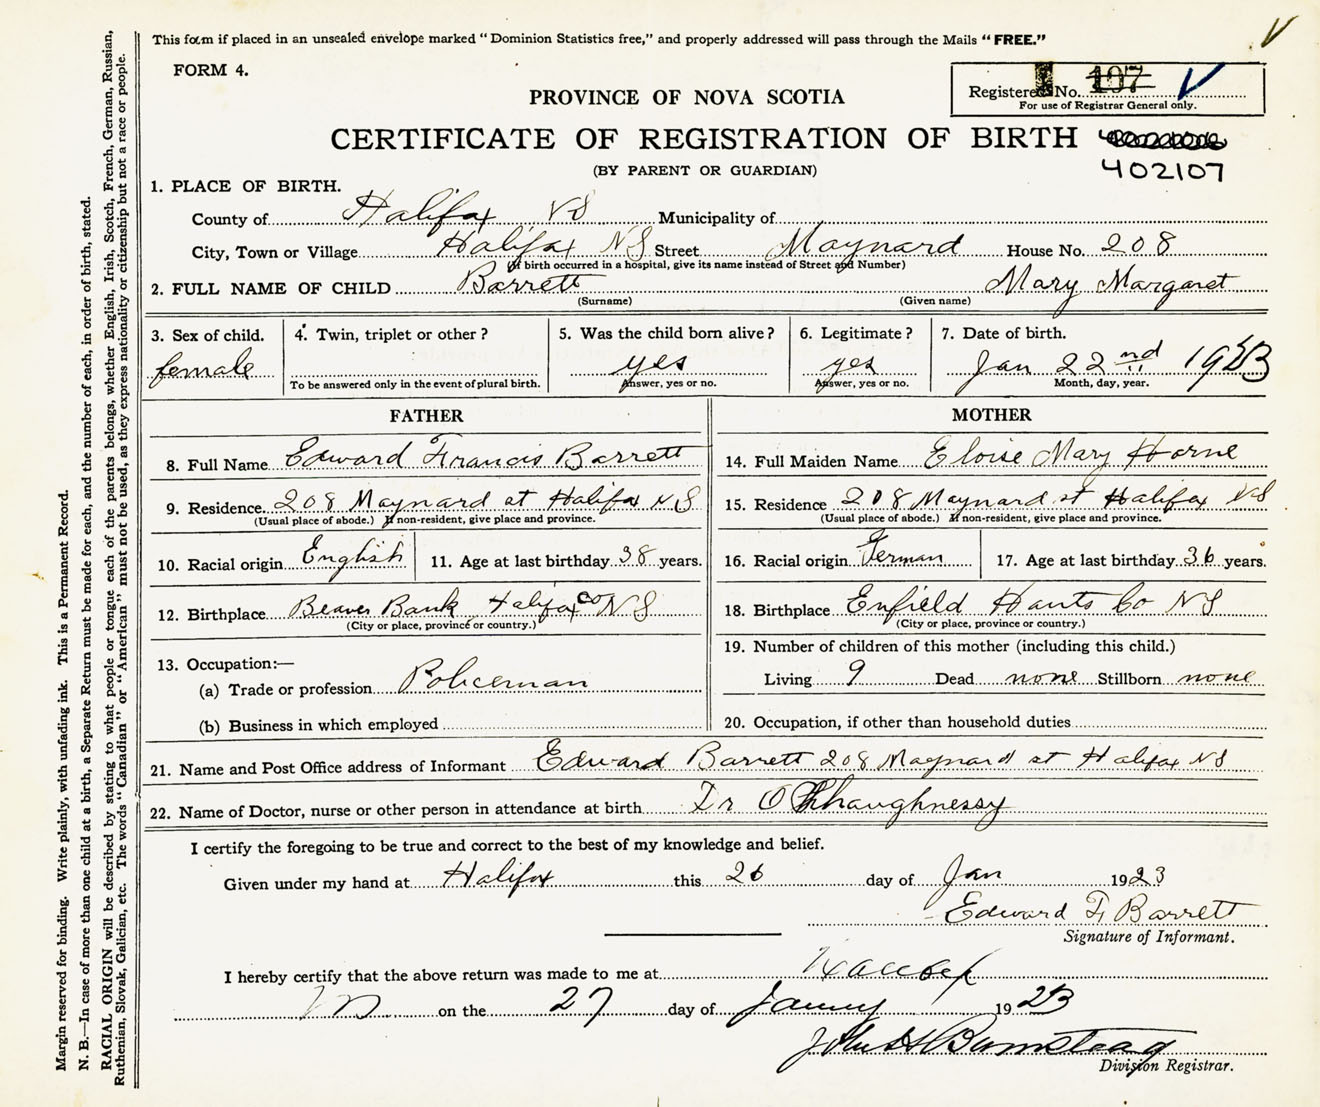 This form if placed in an unsealed envelope marked “Dominion Statistics free,” and properly addressed will pass through the Mails “FREE.”
FORM 4.
Registered No. 107
For use of Registrar General only.
PROVINCE OF NOVA SCOTIA
CERTIFICATE OF REGISTRATION OF BIRTH
402107
(BY PARENT OR GUARDIAN)
1. PLACE OF BIRTH.
County of Halifax NS Municipality of
City, Town or Village Halifax NS Street Maynard House No. 208
(If birth occurred in a hospital, give its name instead of Street and Number)
2. FULL NAME OF CHILD Barrett Mary Margaret
(Surname) (Given name)
3. Sex of child. 4. Twin, triplet or other? 5. Was the child born alive? 6. Legitimate? 7. Date of birth.
female yes yes Jan 22nd 1923
To be answered only in the event of plural birth. Answer, yes or no. Answer, yes or no. Month, day, year.
FATHER MOTHER
8. Full Name Edward Francis Barrett 14. Full Maiden Name Eloise Mary Horne
9. Residence. 208 Maynard st Halifax NS 15. Residence 208 Maynard st Halifax NS
(Usual place of abode.) If non-resident, give place and province. (Usual place of abode.) If non-resident, give place and province.
10. Racial origin English 11. Age at last birthday 38 years. 16. Racial origin German 17. Age at last birthday 36 years.
12. Birthplace Beaver Bank Halifax Co NS 18. Birthplace Enfield Hants Co NS
(City or place, province or country.) (City or place, province or country.)
19. Number of children of this mother (including this child.)
13. Occupation:—
(a) Trade or profession Policeman Living 9 Dead none Stillborn none
(b) Business in which employed 20. Occupation, if other than household duties
21. Name and Post Office address of Informant Edward Barrett 208 Maynard st Halifax NS
22. Name of Doctor, nurse or other person in attendance at birth Dr O'Shaughnessy
I certify the foregoing to be true and correct to the best of my knowledge and belief.
Given under my hand at Halifax this 26 day of Jan 1923
Edward F Barrett
Signature of Informant.
I hereby certify that the above return was made to me at Halifax
on the 27 day of January 1923
John H Barnstead
Division Registrar.
Margin reserved for binding. Write plainly, with unfading ink. This is a Permanent Record.
N. B.—In case of more than one child at a birth, a Separate Return must be made for each, and the number of each, in order of birth, stated.
RACIAL ORIGIN will be described by stating to what people or tongue each of the parents belongs, whether English, Irish, Scotch, French, German, Russian,
Ruthenian, Slovak, Galician, etc. The words “Canadian” or “American” must not be used, as they express nationality or citizenship but not a race or people.